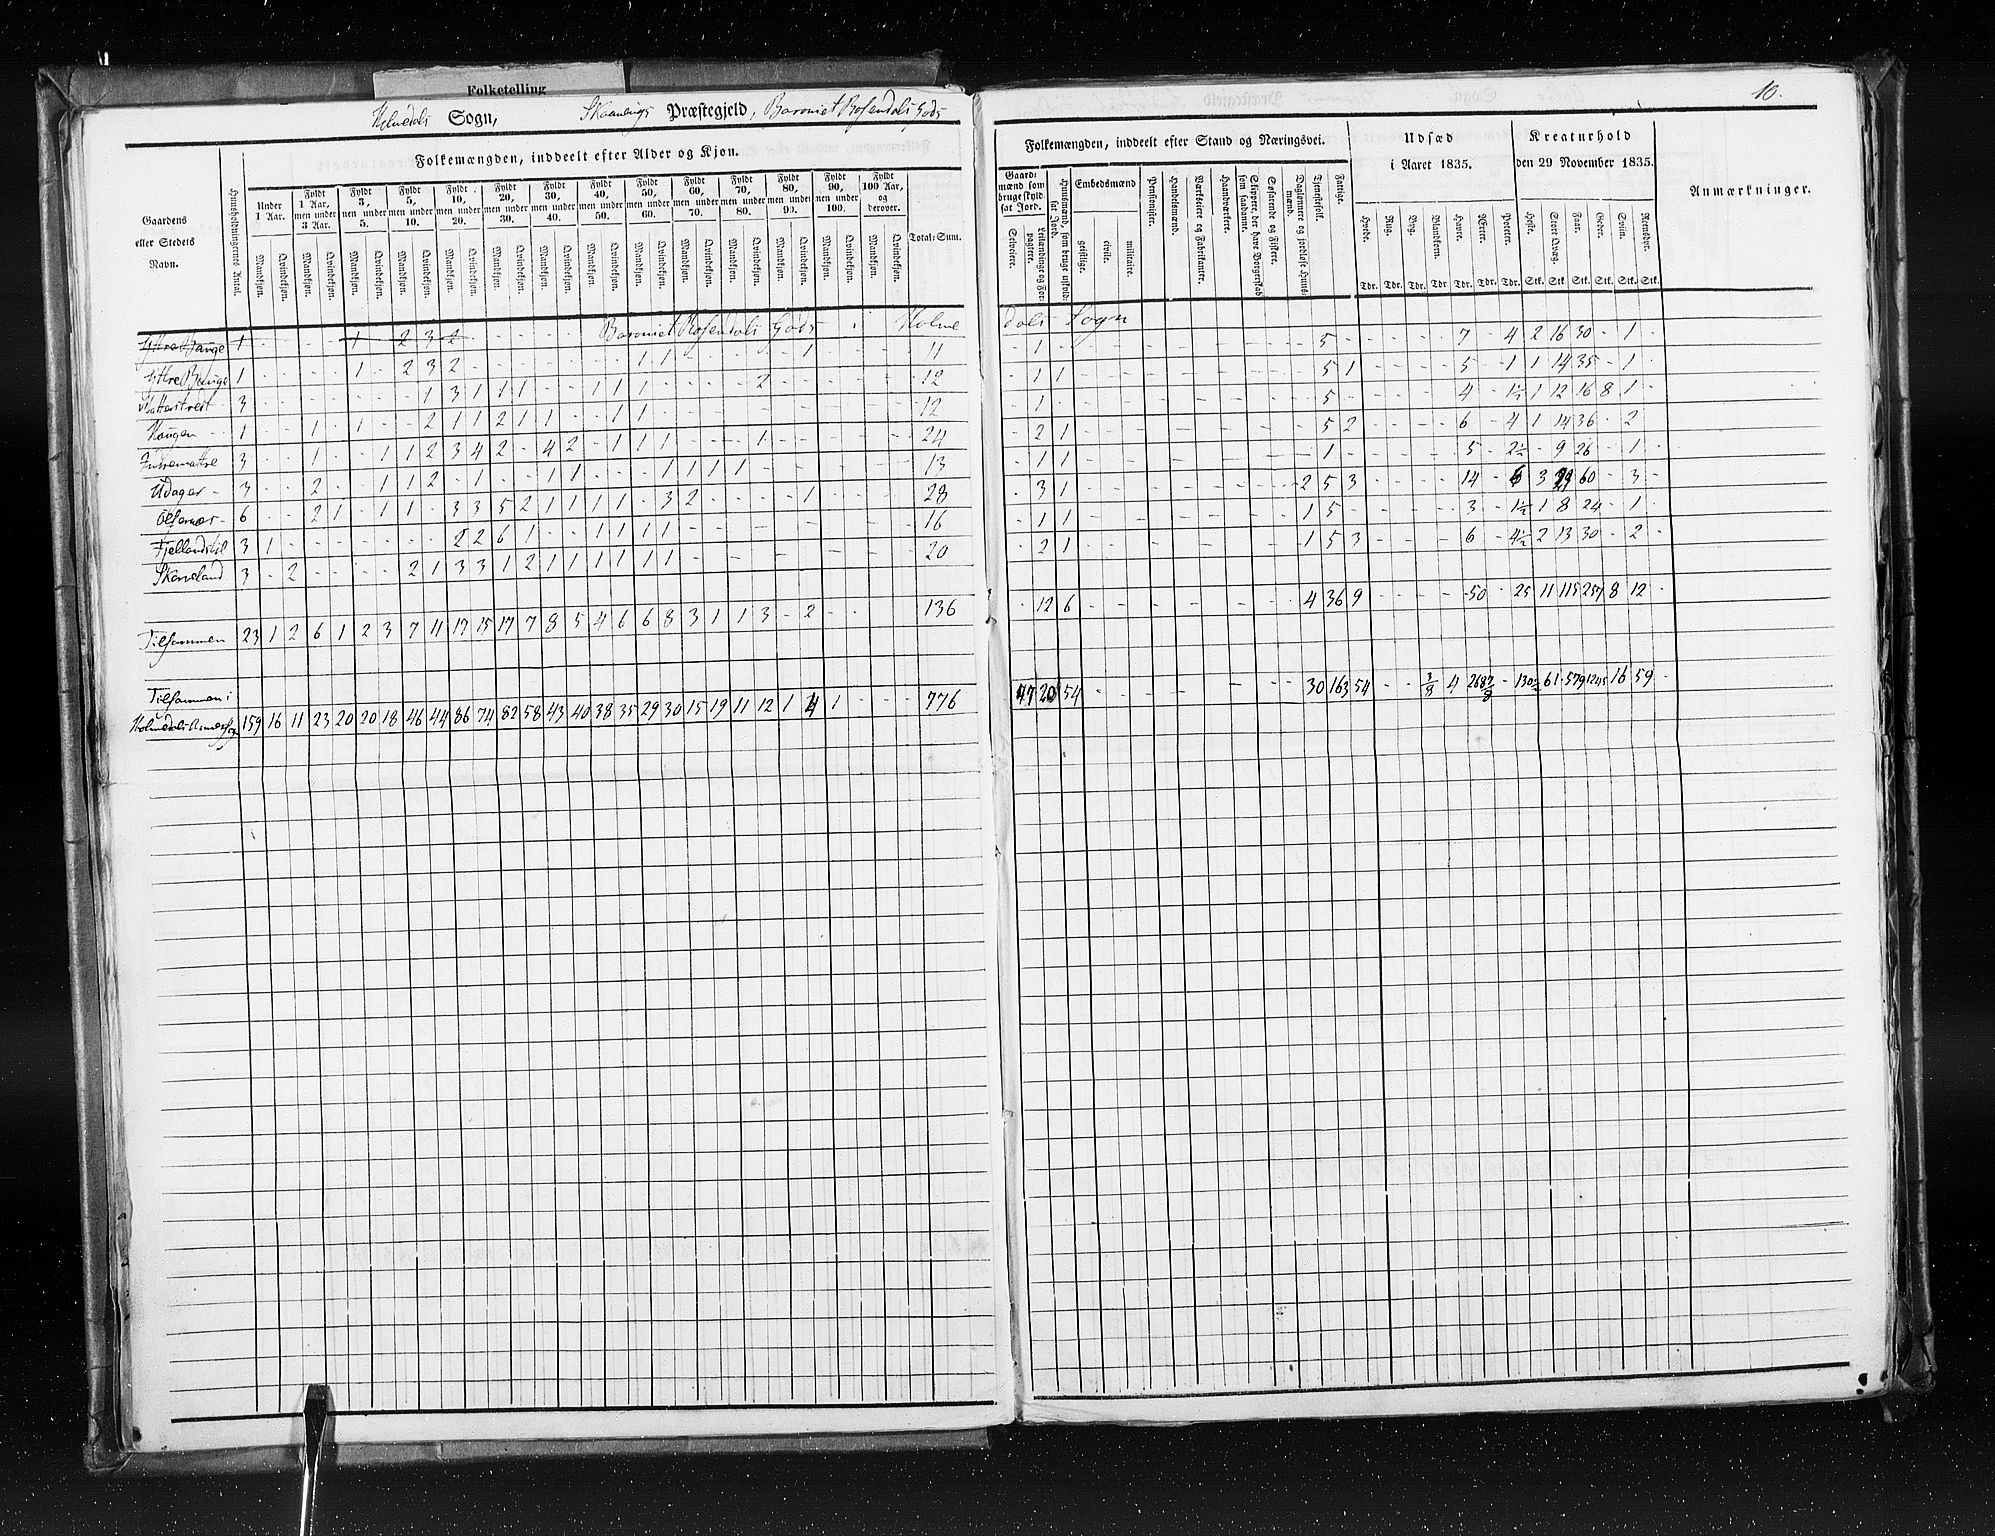 Folketelling
Holmedals Sogn, Skaanevigs Præstegjeld, Baroniet Rosendals Gods
10.
Gaardens eller Stedets Navn.
Huusholdningernes Antal.
Folkemængden, inddeelt efter Alder og Kjøn.
Under 1 Aar. Fyldt 1 Aar, men under 3 Aar. Fyldt 3, men under 5. Fyldt 5, men under 10. Fyldt 10, men under 20. Fyldt 20, men under 30. Fyldt 30, men under 40. Fyldt 40, men under 50. Fyldt 50, men under 60. Fyldt 60, men under 70. Fyldt 70, men under 80. Fyldt 80, men under 90. Fyldt 90, men under 100. Fyldt 100 Aar, og derover. Total-Sum.
Mandkjøn. Qvindekjøn. Mandkjøn. Qvindekjøn. Mandkjøn. Qvindekjøn. Mandkjøn. Qvindekjøn. Mandkjøn. Qvindekjøn. Mandkjøn. Qvindekjøn. Mandkjøn. Qvindekjøn. Mandkjøn. Qvindekjøn. Mandkjøn. Qvindekjøn. Mandkjøn. Qvindekjøn. Mandkjøn. Qvindekjøn. Mandkjøn. Qvindekjøn. Mandkjøn. Qvindekjøn. Mandkjøn. Qvindekjøn.
Folkemængden, inddeelt efter Stand og Næringsvei.
Gaardmænd som bruge skyldsat Jord. Selveiere. Leilændinge og Forpagtere.
Huusmænd som bruge uskyldsat Jord.
Embedsmænd geistlige. civile. militaire.
Pensionister.
Handelsmænd.
Værkseiere og Fabrikanter.
Haandværkere.
Skippere, der have Borgerskab som saadanne.
Søfarende og Fiskere.
Daglønnere og jordløse Huusmænd.
Tjenestefolk.
Fattige.
Udsæd i Aaret 1835.
Hvede. Rug. Byg. Blandkorn. Havre. Erter. Poteter.
Tdr. Tdr. Tdr. Tdr Tdr. Tdr. Tdr.
Kreaturhold den 29 November 1835.
Heste. Stort Qvæg. Faar. Geder. Sviin. Rensdyr.
Stk. Stk. Stk. Stk. Stk. Stk.
Anmærkninger.
Baroniet Rosendals Gods i Holmedals Sogn
Yttre Bauge 1 1 2 3 2
Yttre Bauge 1 - - - - 1 - 2 3 2 - - - - - - - 1 1 - - - - - - 1 - - - - 11
3 1 3 1 1 1 1 1 1 2 12
Haugen 1 1 1 2 1 1 2 1 1 1 1 12
Indrematre 3 1 1 1 2 3 4 2 - 4 2 1 1 1 1 24
Udager 3 2 1 1 2 1 1 1 1 1 1 1 13
Ølfernæs 6 2 1 1 1 3 3 5 2 1 1 1 1 3 2 1 28
3 1 2 2 6 1 1 1 1 1 16
Skoneland 3 2 2 1 3 3 1 2 1 1 1 1 1 1 20
Tilsammen 23 1 2 6 1 2 3 7 11 17 15 17 7 8 5 4 6 6 8 3 1 1 3 - 2 136
Tilsammen i
Holmedals Annexsogn 159 16 11 23 20 20 18 46 44 86 74 82 58 43 40 38 35 29 30 15 19 11 12 1 4 1 - - 776
1 5 7 4 2 16 30 - 1
1 1 5 1 5 1 1 14 35 - 1
1 5 4 1½ 1 12 16 8 1
2 1 5 2 6 4 1 14 36 - 2
1 1 1 5 2½ - 9 26 - 1
3 1 2 5 3 14 6 3 29 60 - 3
1 1 1 5 3 1½ 1 8 24 - 1
2 1 1 5 3 6 4½ 2 13 30 - 2
12 6 4 36 9 50 25 11 115 257 8 12
47 20 54 30 163 54 3/8 4 268 7/8 - 130½ 61 579 1245 16 59